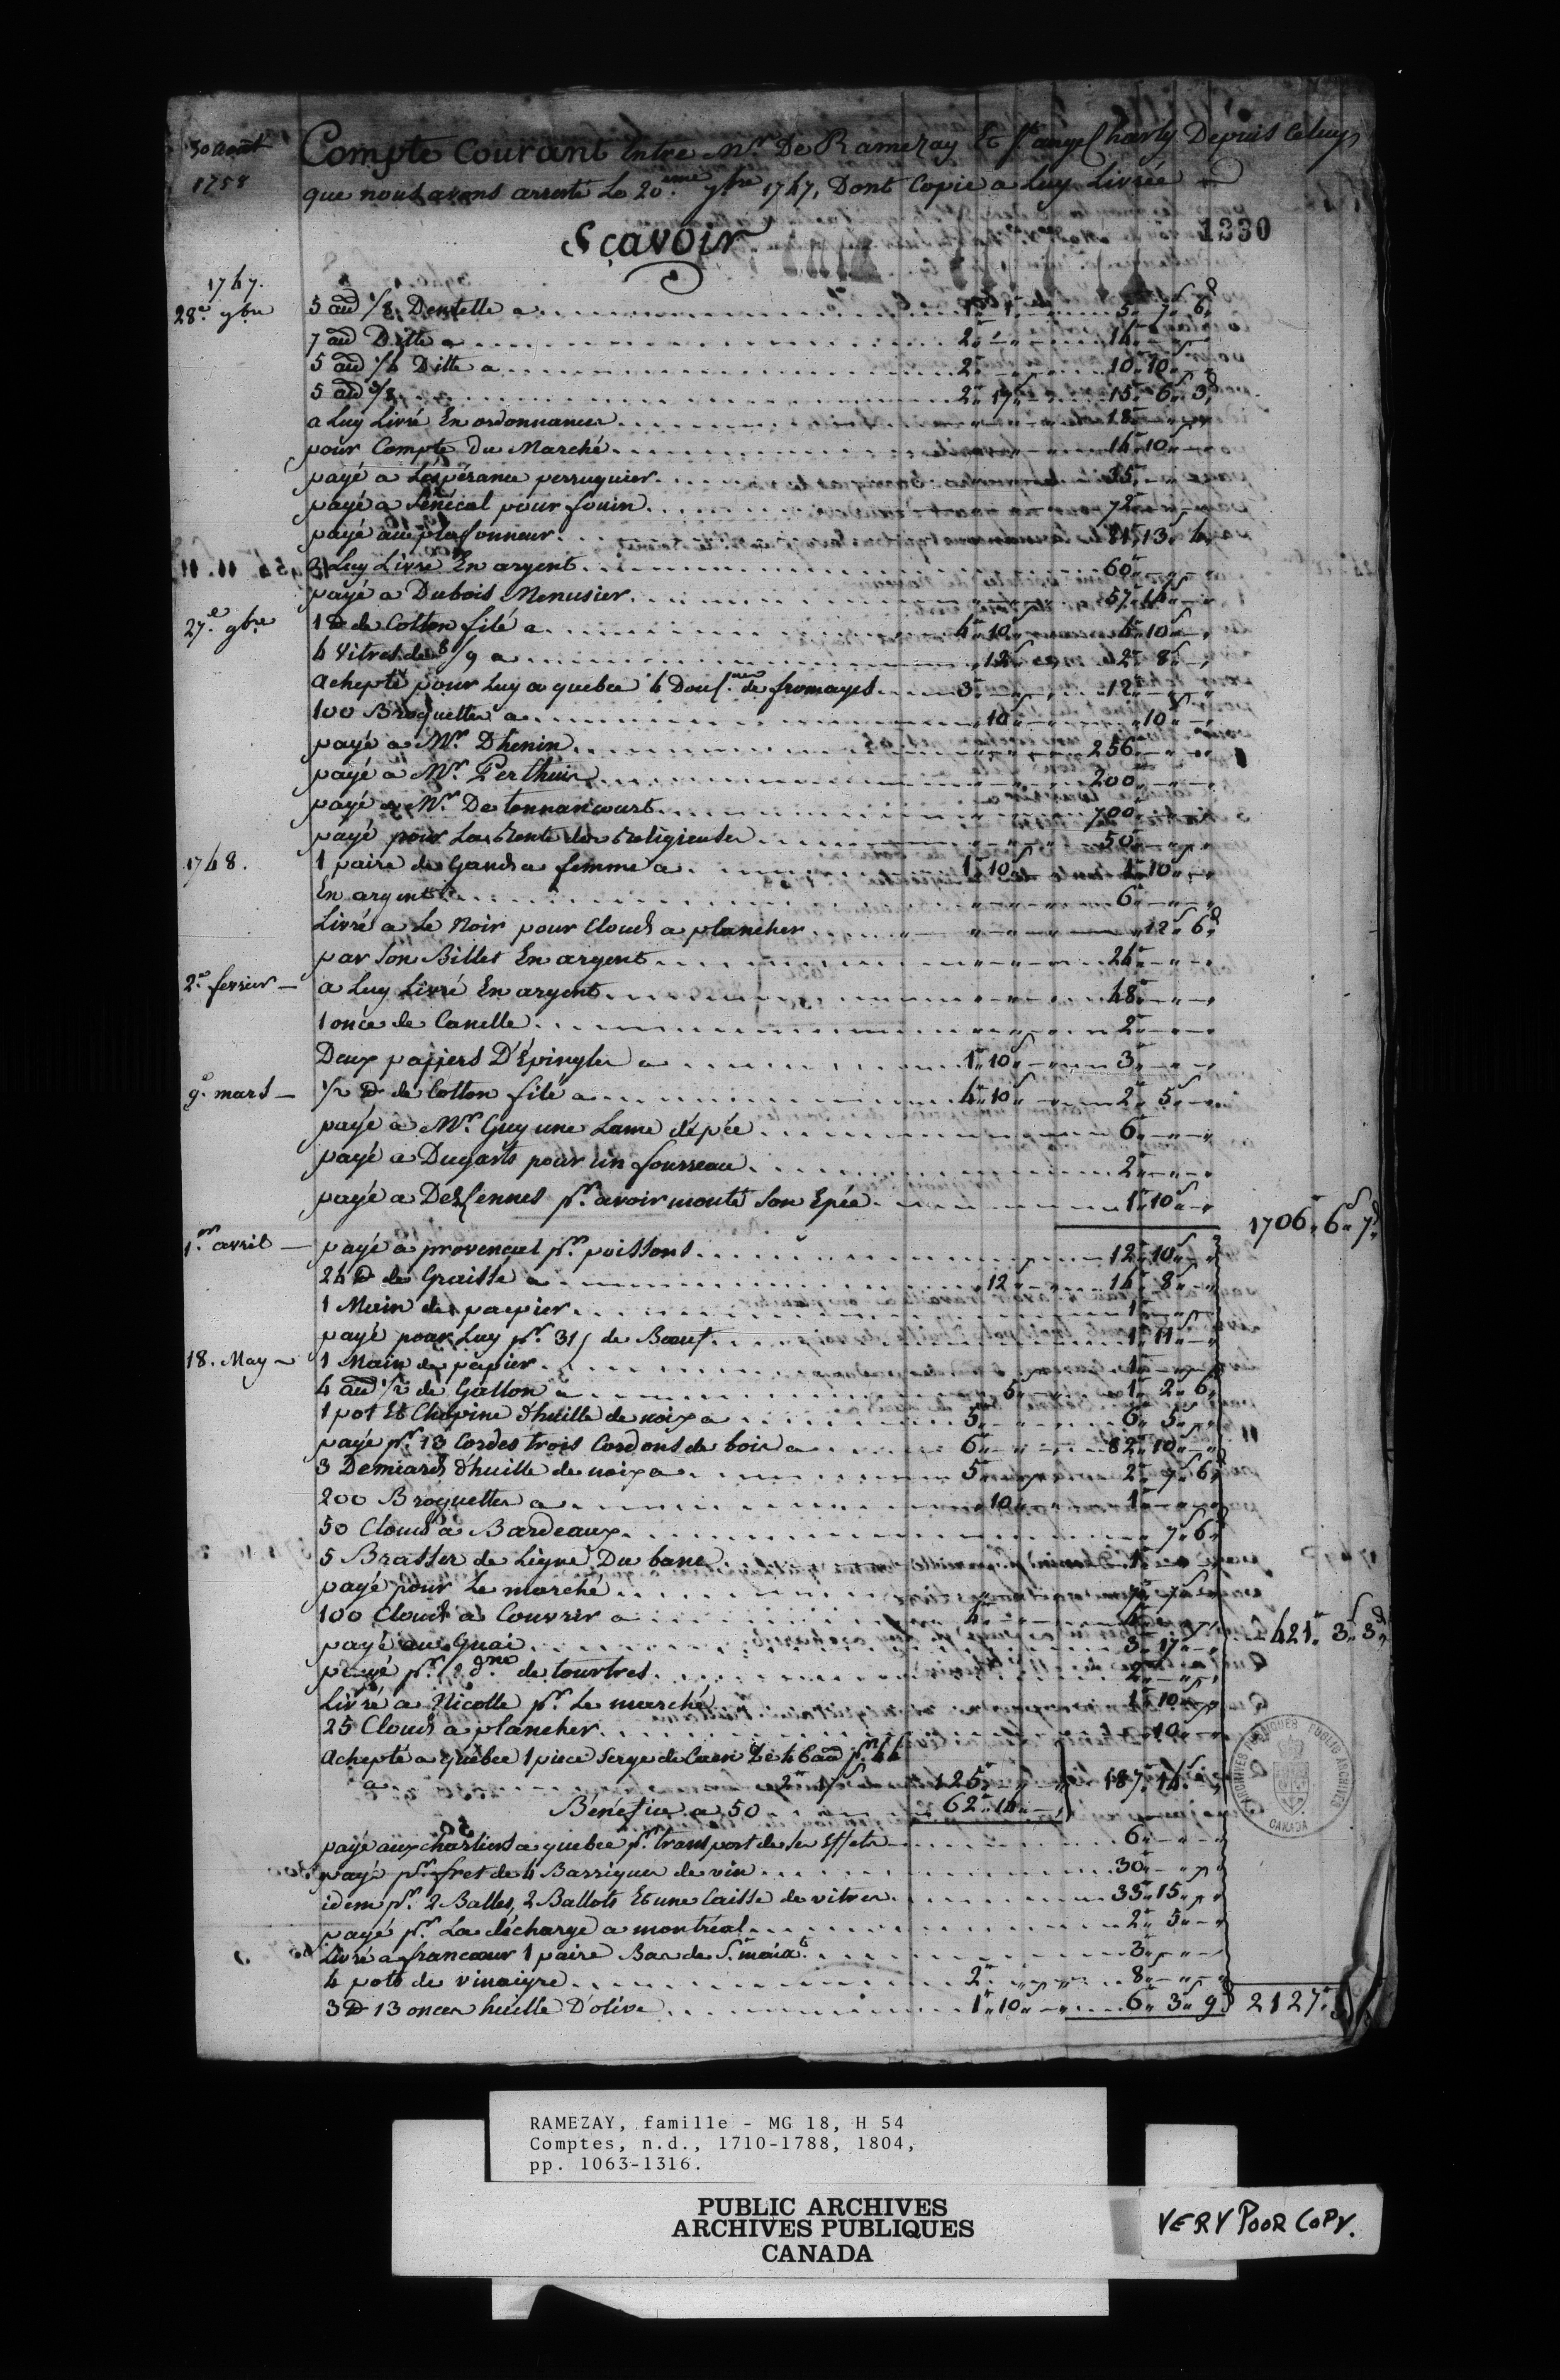 30 aoust
1758
Compte Courant Entre Mr. De Ramezay Et St. ange Charly Depuis Celuy
que nous avons arresté Le 20.eme 9bre 1747, Dont Copie a Luy Livrée
1330
Sçavoir
1747.
28.e 9bre 5 aud 1/8 Dentelle a 1" 1" 5" 7s 6d
7 aud Ditte a 2" 14"
5 aud 1/4 Ditte a 2" 10" 10s
5 aud 3/8 2" 17s 15" 6s 3d
a Luy Livré En ordonnances 18"
pour Compte Du Marché 14" 10
payé a Lespérance perruquier 35"
payé a Sénécal pour fouin 72"
payé au plafonneur 21" 13" 4
a Luy Livré En argent 60"
payé a Dubois Menusier 57" 14
27.e 9bre 1 ℔ de Cotton filé a 4" 10s 4" 10s
4 Vitres de 8/9 a 12s 2" 8s
Achepté pour Luy a quebec 4 Douz.nes de fromages 3" 12"
100 Broquettes a 10s 10s
payé a Mr. Dhenin 256"
payé a Mr. Perthuis 200"
payé a Mr. De tonnancourt 700"
payé pour La Rente des Religieuses 50"
1748. 1 paire de Gands a femme a 1" 10s 1" 10
En argent 6"
Livré a Le Noir pour Clouds a plancher 12s 6d
par Son Billet En argent 24"
2.e fevrier — a Luy Livré En argent 48"
1 once de Canelle 2"
Deux papiers D'Épingles a 1" 10s 3"
9.e mars — 1/2 ℔ de Cotton filé a 4" 10s 2" 5s
payé a Mr. Guy une Lame d'épée 6"
payé a Dugarts pour un fourreau 2"
payé a DesSennes pr. avoir monté Son Epée 1" 10s
1706" 6s 7d
1.er avril — payé a provençal pr. poissons 12" 10s
24 ℔ de Graisse a 12 14" 8s
1 Main de papier 1"
payé pour Luy pr. 31s de Bœuf 1" 11s
18. May 1 Main de papier 1"
4 aud 1/2 de Gallon a 5s 1" 2" 6
1 pot Et Chopine d'huille de noix a 5" 6" 5s
payé pr. 13 Cordes trois Cordons de bois a 6" 82" 10
3 Demiards d'huille de noix a 5" 2" 7s 6d
200 Broquettes a 10 1"
50 Clouds a Bardeaux 7s 6d
5 Brasses de Ligne Du banc 1"
payé pour Le marché 7" 7s
100 Clouds a Couvrir a 4" 4"
421" 3s 3d
payé au Quai 3" 17s
payé pr. 1 dne de tourtres 2"
Livré a Nicolle pr. Le marché 1" 10
25 Clouds a plancher 10
Achepté a quebec 1 piece Serge de Caen
a 2" 17s 125" 187" 14s
Bénéfice a 50 62" 14
payé aux chartiers a quebec pr. transport de Ses Effets 6"
payé pr. fret de 4 Barriques de vin 30"
idem pr. 2 Balles, 2 Ballots Et une Caisse de vitres 33" 15s
payé pr. La décharge a montréal 2" 5s
Livré a francœur 1 paire Bas de 3"
4 pots de vinaigre 2" 8"
3 ℔ 13 onces huille D'olive 1" 10s 6" 3s 9d
2127"
ARCHIVES PUBLIQUES PUBLIC ARCHIVES
CANADA
RAMEZAY, famille - MG 18, H 54
Comptes, n.d., 1710-1788, 1804,
pp. 1063-1316.
PUBLIC ARCHIVES
ARCHIVES PUBLIQUES
CANADA
VERY POOR COPY.